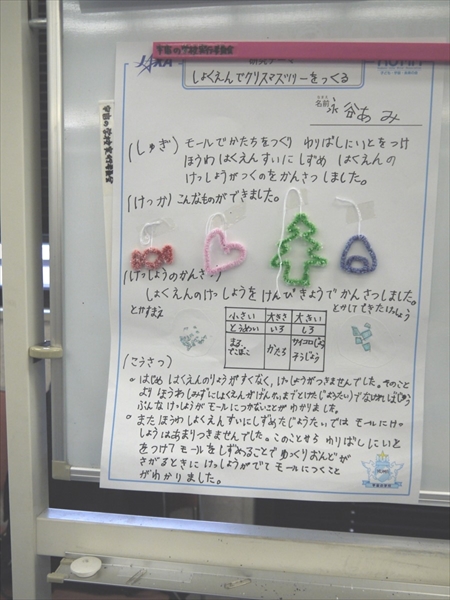 しょくえんでクリスマスツリーをつくる
名前 永谷あみ
(しゅぎ) モールでかたちをつくり わりばしにいとをつけ
ほうわ しょくえんすいに しずめ しょくえんの
けっしょうがつくのをかんさつ しました。
(けっか) こんなものができました。
(けっしょうのかんさつ)
しょくえんのけっしょうをけんびきょうでかんさつしました。
とかすまえ
とかしてできたけっしょう
小さい 大きさ 大きい
とうめい いろ しろ
まる、でこぼこ かたち サイコロじょう
(こうさつ)
はじめ しょくえんのりょうがすくなく、けっしょうがつきませんでした。そのこと
ぶんな けっしょうが モールにつかないことが わかりました。
また ほうわ しょくえんすいにしずめたじょうたいでは モールにけっ
しょうはあまりつきませんでした。このことから わりばしにいと
をつけて モールをしずめることで ゆっくりおんどが
さがるときに けっしょうがでて モールにつくこと
がわかりました。